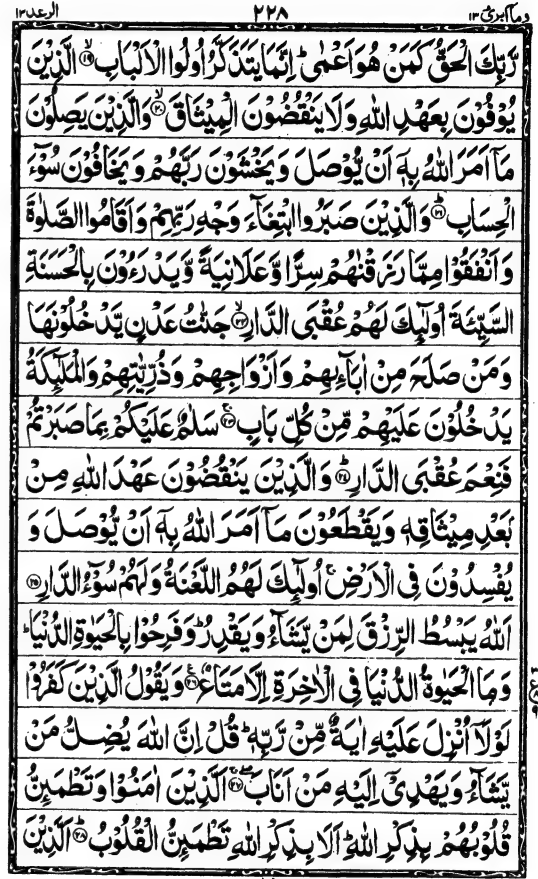 وما ابرئ ١٣ ٢٢٨ الرعد ١٣
رَّبِّكَ الْحَقُّ كَمَنْ هُوَ اَعْمٰى ؕ اِنَّمَا يَتَذَكَّرُ اُولُوا الْاَلْبَابِ ۙ‏﴿۱۹﴾ الَّذِيْنَ
يُوْفُوْنَ بِعَهْدِ اللّٰهِ وَلَا يَنْقُضُوْنَ الْمِيْثَاقَ ۙ‏﴿۲۰﴾ وَالَّذِيْنَ يَصِلُوْنَ
مَاۤ اَمَرَ اللّٰهُ بِهٖۤ اَنْ يُّوْصَلَ وَيَخْشَوْنَ رَبَّهُمْ وَيَخَافُوْنَ سُوْٓءَ
الْحِسَابِ ؕ‏﴿۲۱﴾ وَالَّذِيْنَ صَبَرُوا ابْتِغَآءَ وَجْهِ رَبِّهِمْ وَاَقَامُوا الصَّلٰوةَ
وَاَنْفَقُوْا مِمَّا رَزَقْنٰهُمْ سِرًّا وَّعَلَانِيَةً وَّيَدْرَءُوْنَ بِالْحَسَنَةِ
السَّيِّئَةَ اُولٰٓئِكَ لَهُمْ عُقْبَى الدَّارِ ۙ‏﴿۲۲﴾ جَنّٰتُ عَدْنٍ يَّدْخُلُوْنَهَا
وَمَنْ صَلَحَ مِنْ اٰبَآئِهِمْ وَاَزْوَاجِهِمْ وَذُرِّيّٰتِهِمْ وَالْمَلٰٓئِكَةُ
يَدْخُلُوْنَ عَلَيْهِمْ مِّنْ كُلِّ بَابٍ ۚ‏﴿۲۳﴾ سَلٰمٌ عَلَيْكُمْ بِمَا صَبَرْتُمْ
فَنِعْمَ عُقْبَى الدَّارِ ؕ‏﴿۲۴﴾ وَالَّذِيْنَ يَنْقُضُوْنَ عَهْدَ اللّٰهِ مِنْۢ
بَعْدِ مِيْثَاقِهٖ وَيَقْطَعُوْنَ مَاۤ اَمَرَ اللّٰهُ بِهٖۤ اَنْ يُّوْصَلَ وَ
يُفْسِدُوْنَ فِى الْاَرْضِ ۙ اُولٰٓئِكَ لَهُمُ اللَّعْنَةُ وَلَهُمْ سُوْٓءُ الدَّارِ‏﴿۲۵﴾
اَللّٰهُ يَبْسُطُ الرِّزْقَ لِمَنْ يَّشَآءُ وَيَقْدِرُ ؕ وَفَرِحُوْا بِالْحَيٰوةِ الدُّنْيَا ؕ
وَمَا الْحَيٰوةُ الدُّنْيَا فِى الْاٰخِرَةِ اِلَّا مَتَاعٌ‏﴿۲۶﴾ وَيَقُوْلُ الَّذِيْنَ كَفَرُوْا
لَوْلَاۤ اُنْزِلَ عَلَيْهِ اٰيَةٌ مِّنْ رَّبِّهٖ ؕ قُلْ اِنَّ اللّٰهَ يُضِلُّ مَنْ
يَّشَآءُ وَيَهْدِىْۤ اِلَيْهِ مَنْ اَنَابَ ۖ‏﴿۲۷﴾ اَلَّذِيْنَ اٰمَنُوْا وَتَطْمَئِنُّ
قُلُوْبُهُمْ بِذِكْرِ اللّٰهِ ؕ اَلَا بِذِكْرِ اللّٰهِ تَطْمَئِنُّ الْقُلُوْبُ ؕ‏﴿۲۸﴾ اَلَّذِيْنَ